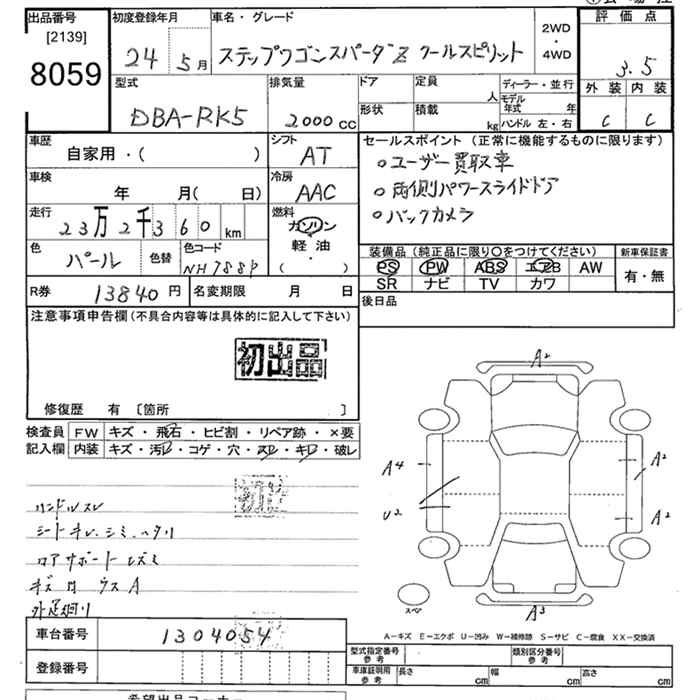 出品番号
[2139]
8059
初度登録年月
24 5月
車名・グレード
ステップワゴンスパーダZ クールスピリット
2WD
・
4WD
評価点
3.5
外装 内装
C C
型式
DBA-RK5
排気量
2000cc
ドア
形状
定員
人
積載
kg
ディーラー・並行
モデル年式 年
ハンドル 左・右
車歴
自家用・( )
シフト
AT
車検
年 月( 日)
冷房
AAC
走行
23万2千360km
燃料
ガソリン
・
軽油
( )
色
パール
色替
色コード
NH788P
R券 13840円
名変期限 月 日
セールスポイント(正常に機能するものに限ります)
○ユーザー買取車
○両側パワースライドドア
○バックカメラ
装備品(純正品に限り○をつけてください)
PS PW ABS エアB AW
SR ナビ TV カワ
新車保証書
有・無
後日品
注意事項申告欄(不具合内容等は具体的に記入して下さい)
初出品
修復歴 有 〔箇所 〕
検査員 FW キズ・飛石・ヒビ割・リペア跡・×要
記入欄 内装 キズ・汚レ・コゲ・穴・スレ・キレ・破レ
初出品
ハンドルスレ
シートキレ、シミ、ヘタリ
キズ 凹 ウス A
外足廻り
A2
A4
U2
A2
A2
スペア
A3
A-キズ E-エクボ U-凹み W-補修跡 S-サビ C-腐食 XX-交換済
車台番号
1304054
登録番号
型式指定番号
参考
類別区分番号
参考
車庫証明用
参考
長さ cm
幅 cm
高さ cm